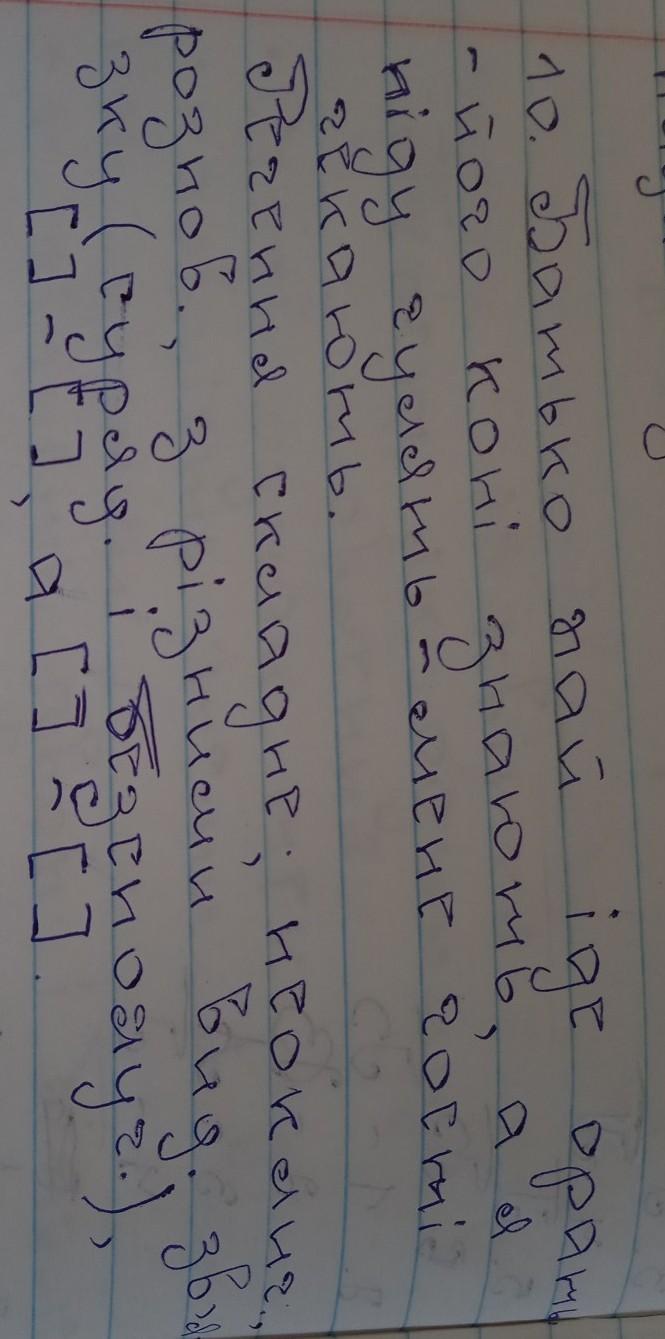 10. Батько най іде орать
- його коні знають, а я
піду гулять - мене гості
чекають.
Речення складне, неоклич.,
розпов., з різними вид. зв'я
зку (суряд. і безсполуч.),
[ ] - [ ], а [ ] - [ ].